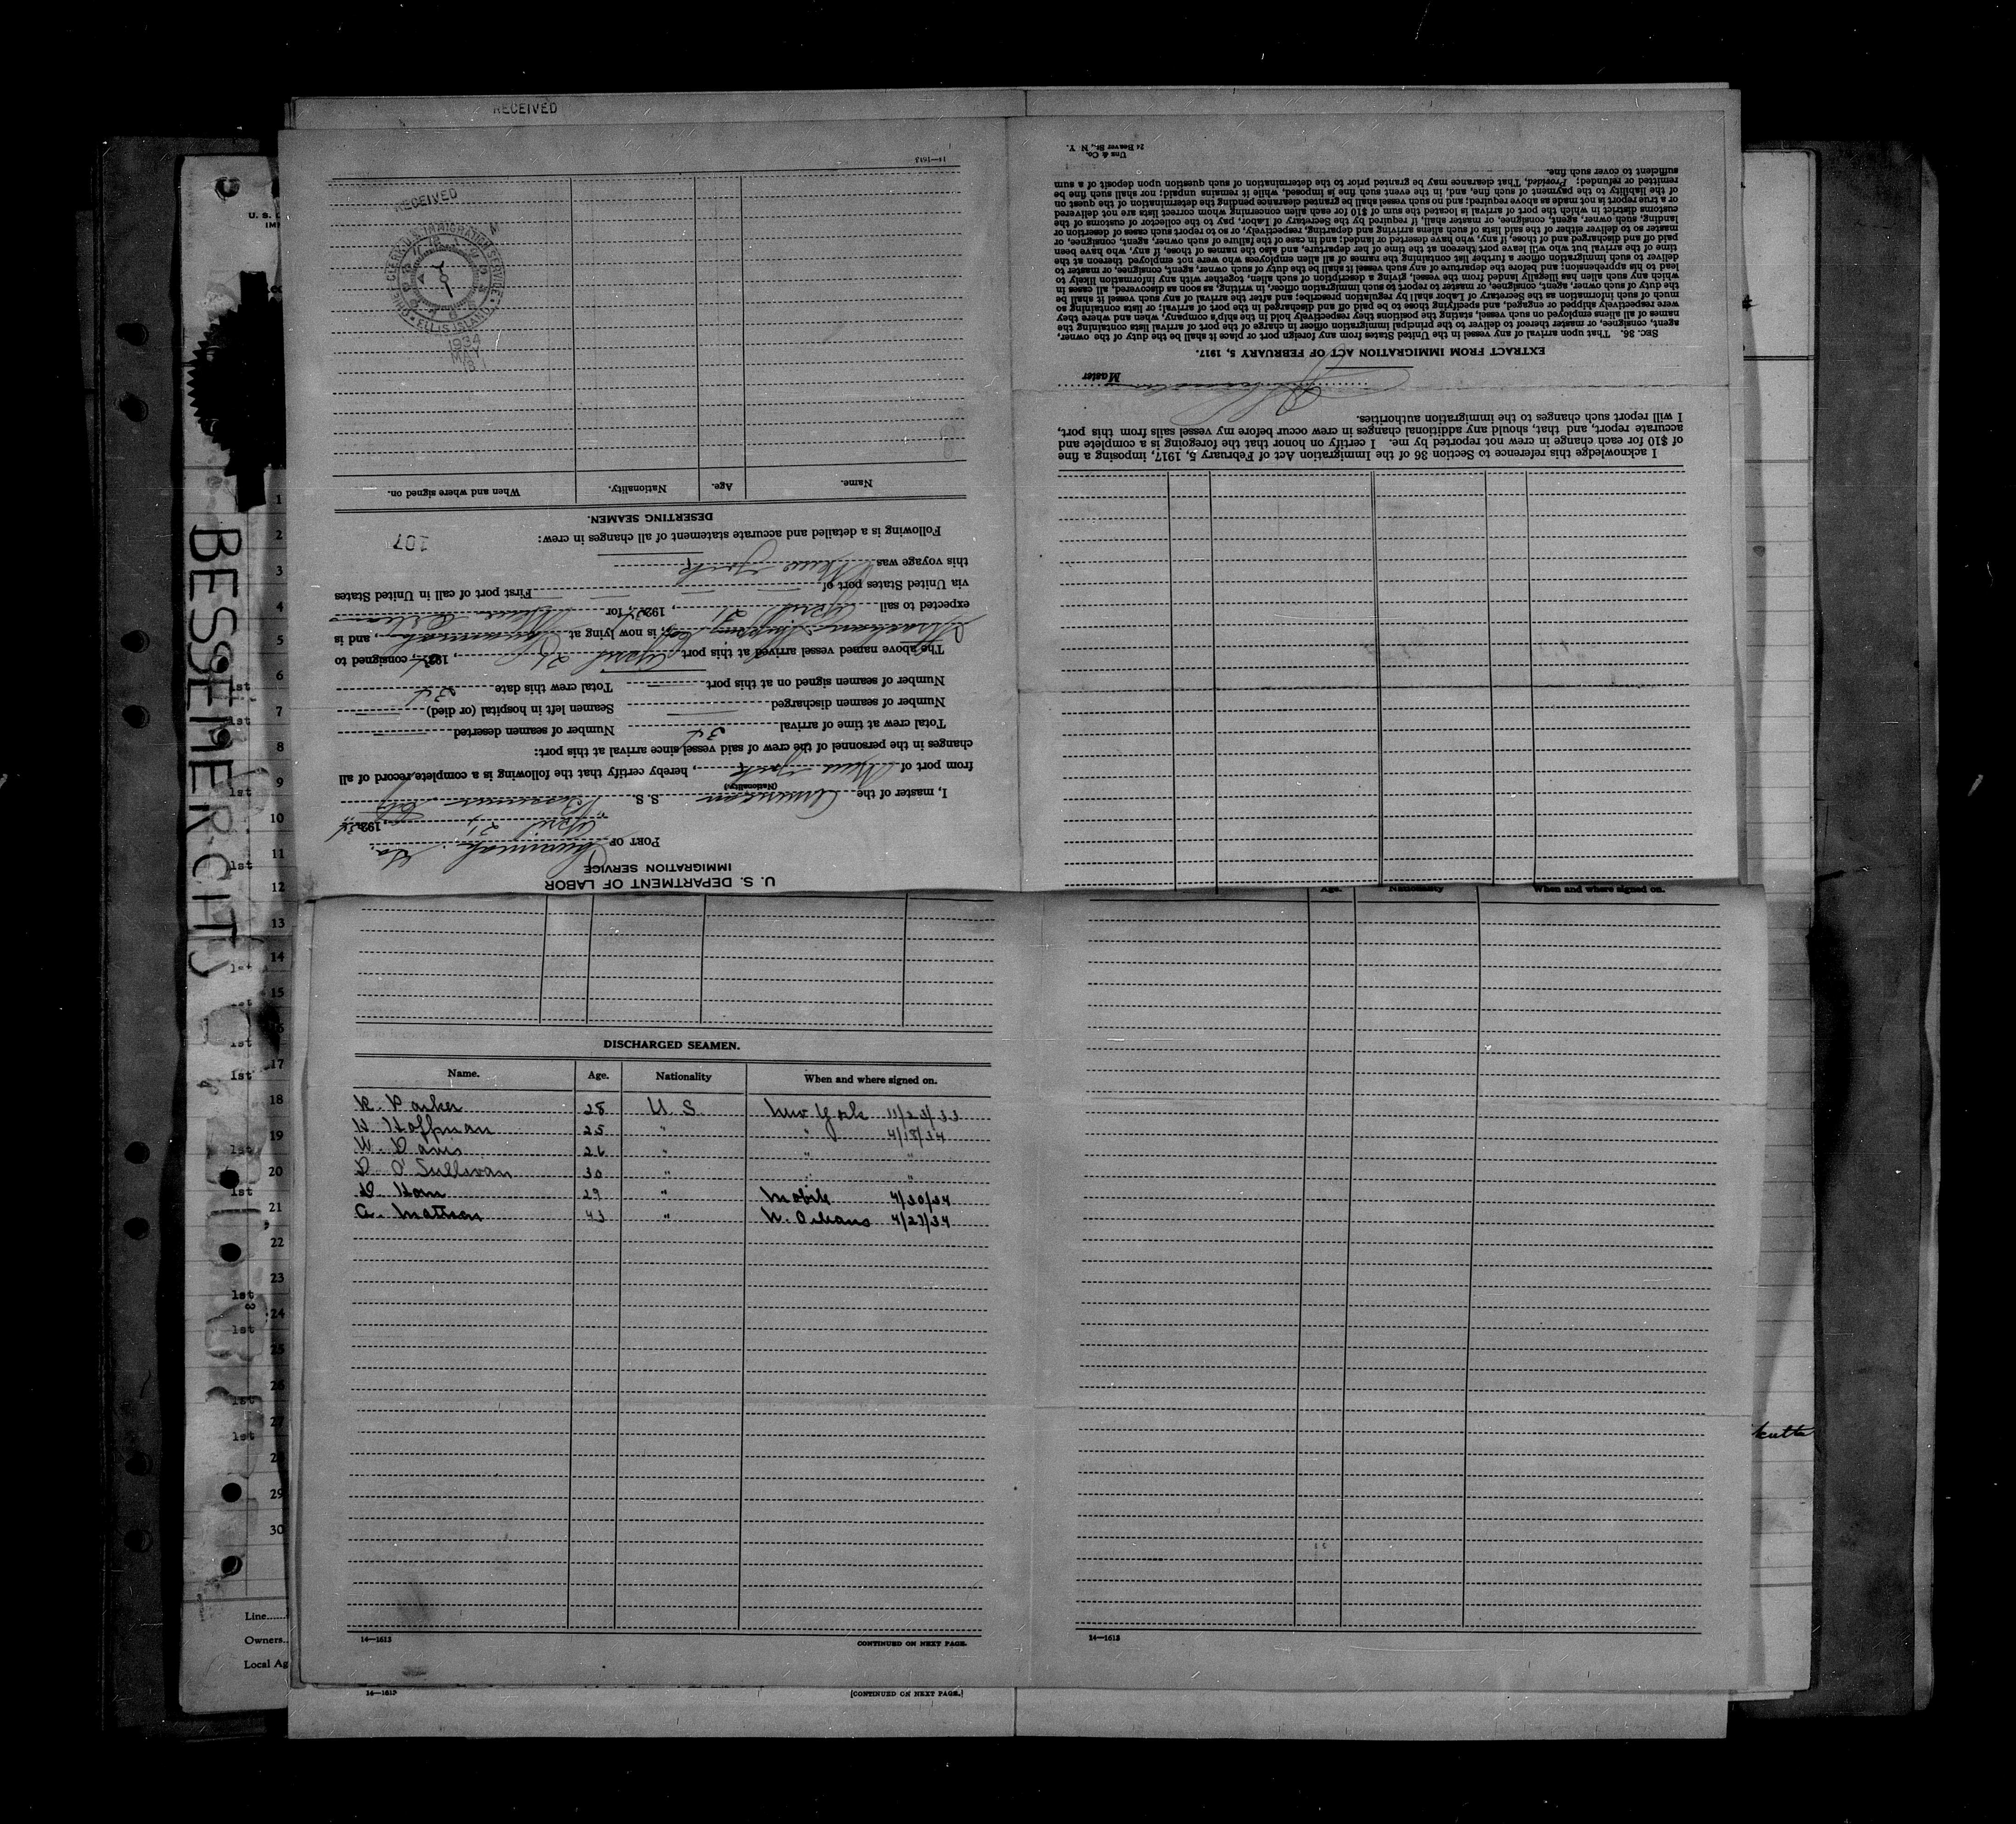 RECEIVED
BESSEMER CITY
U. S. DEPARTMENT OF LABOR
IMMIGRATION SERVICE
PORT OF Savannah, Ga.
April 21, 1934
I, master of the American S. S. Bessemer City
(Nationality)
from port of New York, hereby certify that the following is a complete record of all
changes in the personnel of the crew of said vessel since arrival at this port:
Total crew at time of arrival 34 Number of seamen deserted
Number of seamen discharged Seamen left in hospital (or died)
Number of seamen signed on at this port Total crew this date 34
The above named vessel arrived at this port April 21, 1934, consigned to
Strachan Shipping Co, is now lying at , and is
expected to sail April 21, 1934, for New Orleans
via United States port of First port of call in United States
this voyage was New York
Following is a detailed and accurate statement of all changes in crew:
107
DESERTING SEAMEN.
Name. Age. Nationality. When and where signed on.
RECEIVED
IMMIGRATION SERVICE
ELLIS ISLAND
1934
MAY
14—1613
I acknowledge this reference to Section 36 of the Immigration Act of February 5, 1917, imposing a fine
of $10 for each change in crew not reported by me. I certify on honor that the foregoing is a complete and
accurate report, and that, should any additional changes in crew occur before my vessel sails from this port,
I will report such changes to the immigration authorities.
Master
EXTRACT FROM IMMIGRATION ACT OF FEBRUARY 5, 1917.
SEC. 36. That upon arrival of any vessel in the United States from any foreign port or place it shall be the duty of the owner,
agent, consignee, or master thereof to deliver to the principal immigration officer in charge of the port of arrival lists containing the
names of all aliens employed on such vessel, stating the positions they respectively hold in the ship's company, when and where they
were respectively shipped or engaged, and specifying those to be paid off and discharged in the port of arrival; or lists containing so
much of such information as the Secretary of Labor shall by regulation prescribe; and after the arrival of any such vessel it shall be
the duty of such owner, agent, consignee, or master to report to such immigration officer, in writing, as soon as discovered, all cases in
which any such alien has illegally landed from the vessel, giving a description of such alien, together with any information likely to
lead to his apprehension; and before the departure of any such vessel it shall be the duty of such owner, agent, consignee, or master to
deliver to such immigration officer a further list containing the names of all alien employees who were not employed thereon at the
time of the arrival but who will leave port thereon at the time of her departure, and also the names of those, if any, who have been
paid off and discharged and of those, if any, who have deserted or landed; and in case of the failure of such owner, agent, consignee, or
master so to deliver either of the said lists of such aliens arriving and departing, respectively, or so to report such cases of desertion or
landing, such owner, agent, consignee, or master shall, if required by the Secretary of Labor, pay to the collector of customs of the
customs district in which the port of arrival is located the sum of $10 for each alien concerning whom correct lists are not delivered
or a true report is not made as above required; and no such vessel shall be granted clearance pending the determination of the quest on
of the liability to the payment of such fine, and, in the event such fine is imposed, while it remains unpaid; nor shall such fine be
remitted or refunded; Provided, That clearance may be granted prior to the determination of such question upon deposit of a sum
sufficient to cover such fine.
Unz & Co.
24 Beaver St., N. Y.
Age. Nationality When and where signed on.
DISCHARGED SEAMEN.
Name. Age. Nationality When and where signed on.
R. Parker 28 U. S. New York 11/23/33
H. Hoffman 25 " " 4/18/34
W. Davis 26 " " "
D. O'Sullivan 30 " " "
D. Horn 29 " Mobile 4/30/34
A. Mattson 43 " N. Orleans 4/23/34
14—1613 CONTINUED ON NEXT PAGE.
14—1613
14—1613 [CONTINUED ON NEXT PAGE.]
U. S.
1
2
3
4
5
6
7
8
9
10
11
12
13
14
15
16
17
18
19
20
21
22
23
24
25
26
27
28
29
30
1st
Line
Owners
Local Ag